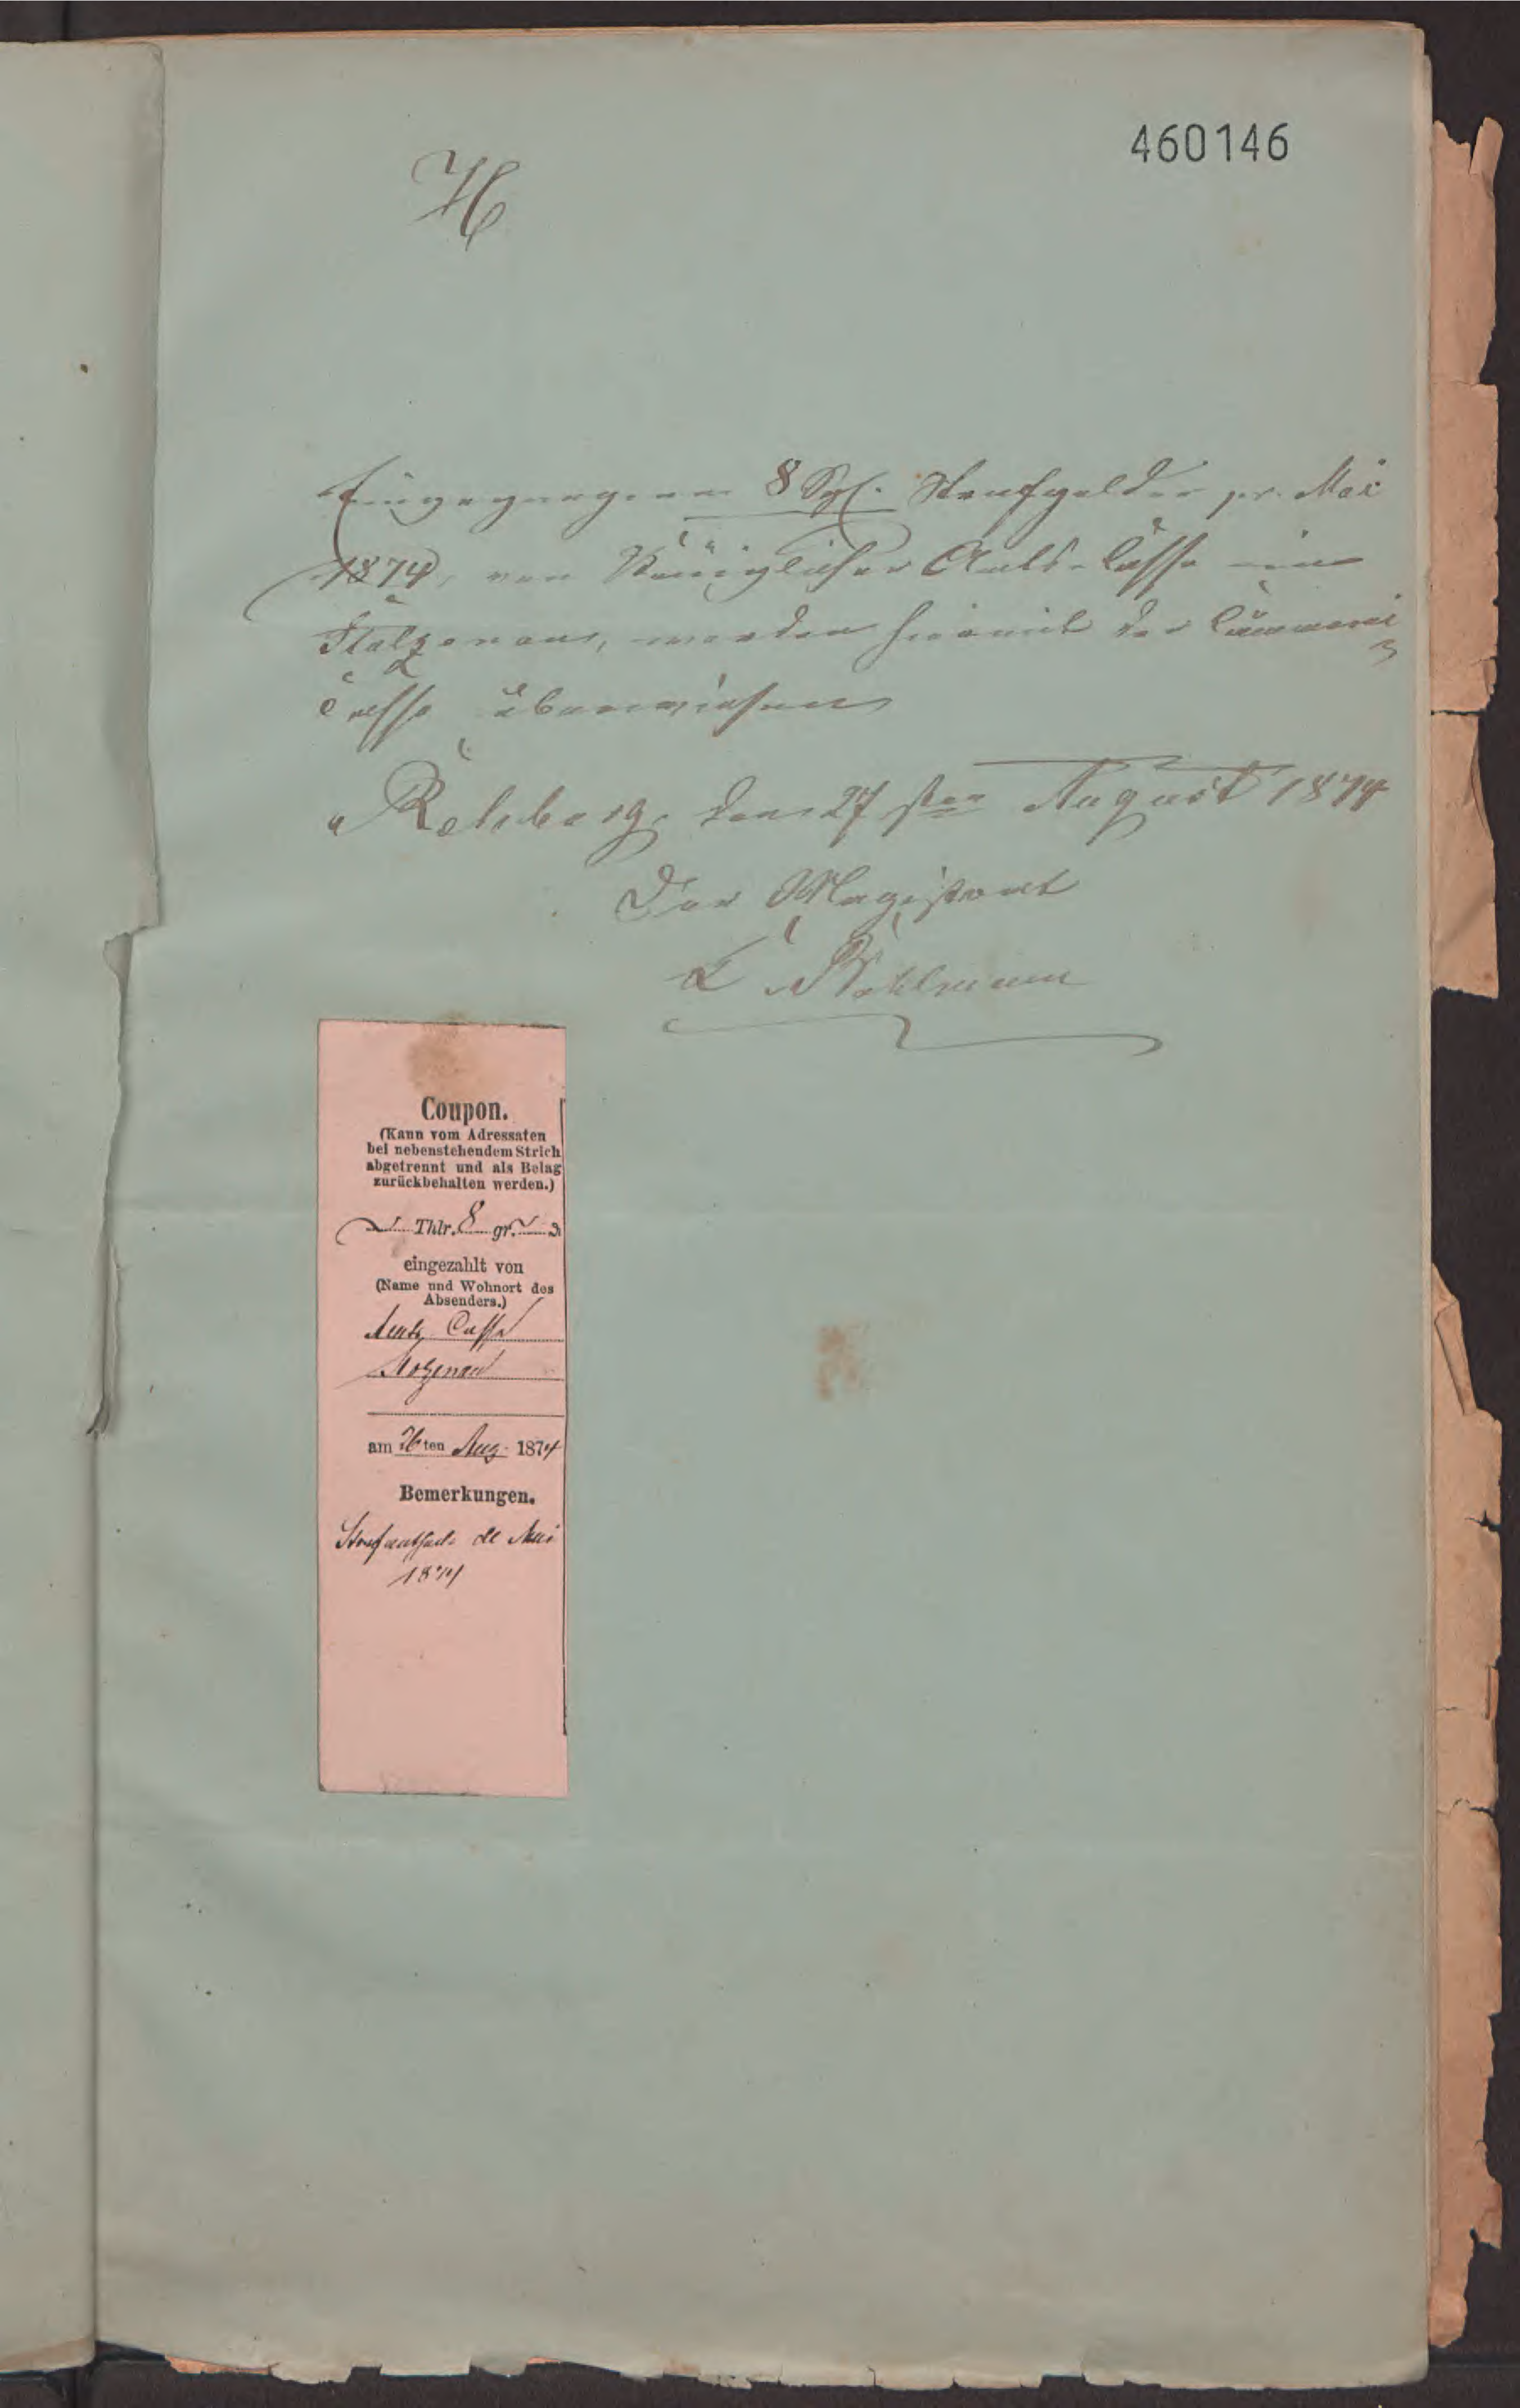 460146
H
Eingegangene 8 Sgl. Strafgelder pr. Mai
1874, von Königlicher Amts-Casse in
Stolzenau, werden hiemit der Cämmerei
Casse überwiesen
Rehburg, den 27sten August 1874
Der Magistrat
Coupon.
(Kann vom Adressaten
bei nebenstehendem Strich
abgetrennt und als Belag
zurückbehalten werden.)
Thlr. 8 gr.
eingezahlt von
(Name und Wohnort des
Absenders.)
Amts Casse
Stolzenau
am 26ten Aug. 1874
Bemerkungen.
de Mai
1874